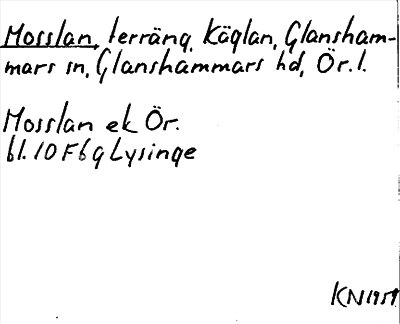 Mosslan, terräng, Käglan, Glansham-
mars sn, Glanshammars hd, Ör. l.
Mosslan ek Ör.
bl. 10 F 6 g Lysinge
KN 1951